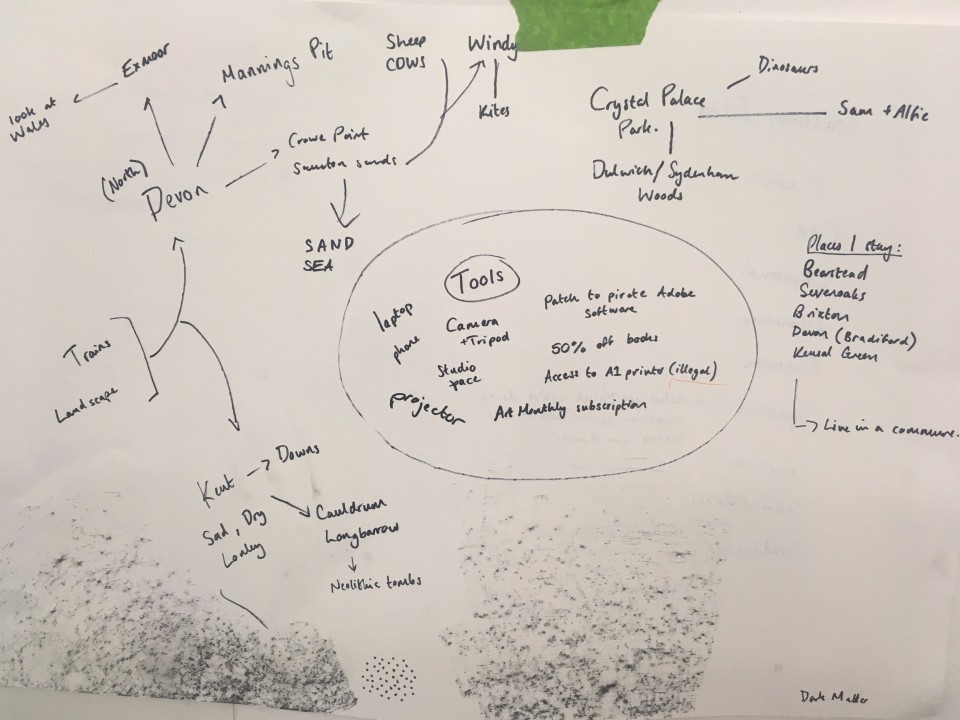 Exmoor
look at
Wales
Mannings Pit
Sheep
COWS
Windy
Kites
(North)
Devon
Crowe Point
Saunton sands
SAND
SEA
Crystal Palace
Park.
Dinosaurs
Sam + Alfie
Dulwich/Sydenham
Woods
Places I stay:
Bearstead
Sevenoaks
Brixton
Devon (Bradiford)
Kensal Green
Live in a commune.
Tools
laptop
phone
Camera
+Tripod
Studio
space
projector
Patch to pirate Adobe
software
50% off books
Access to A1 printer (illegal)
Art Monthly subscription
Trains
Landscape
Kent
Downs
Sad, Dry
Lonley
Cauldrum
Longbarrow
Neolithic tombs
Dark Matter